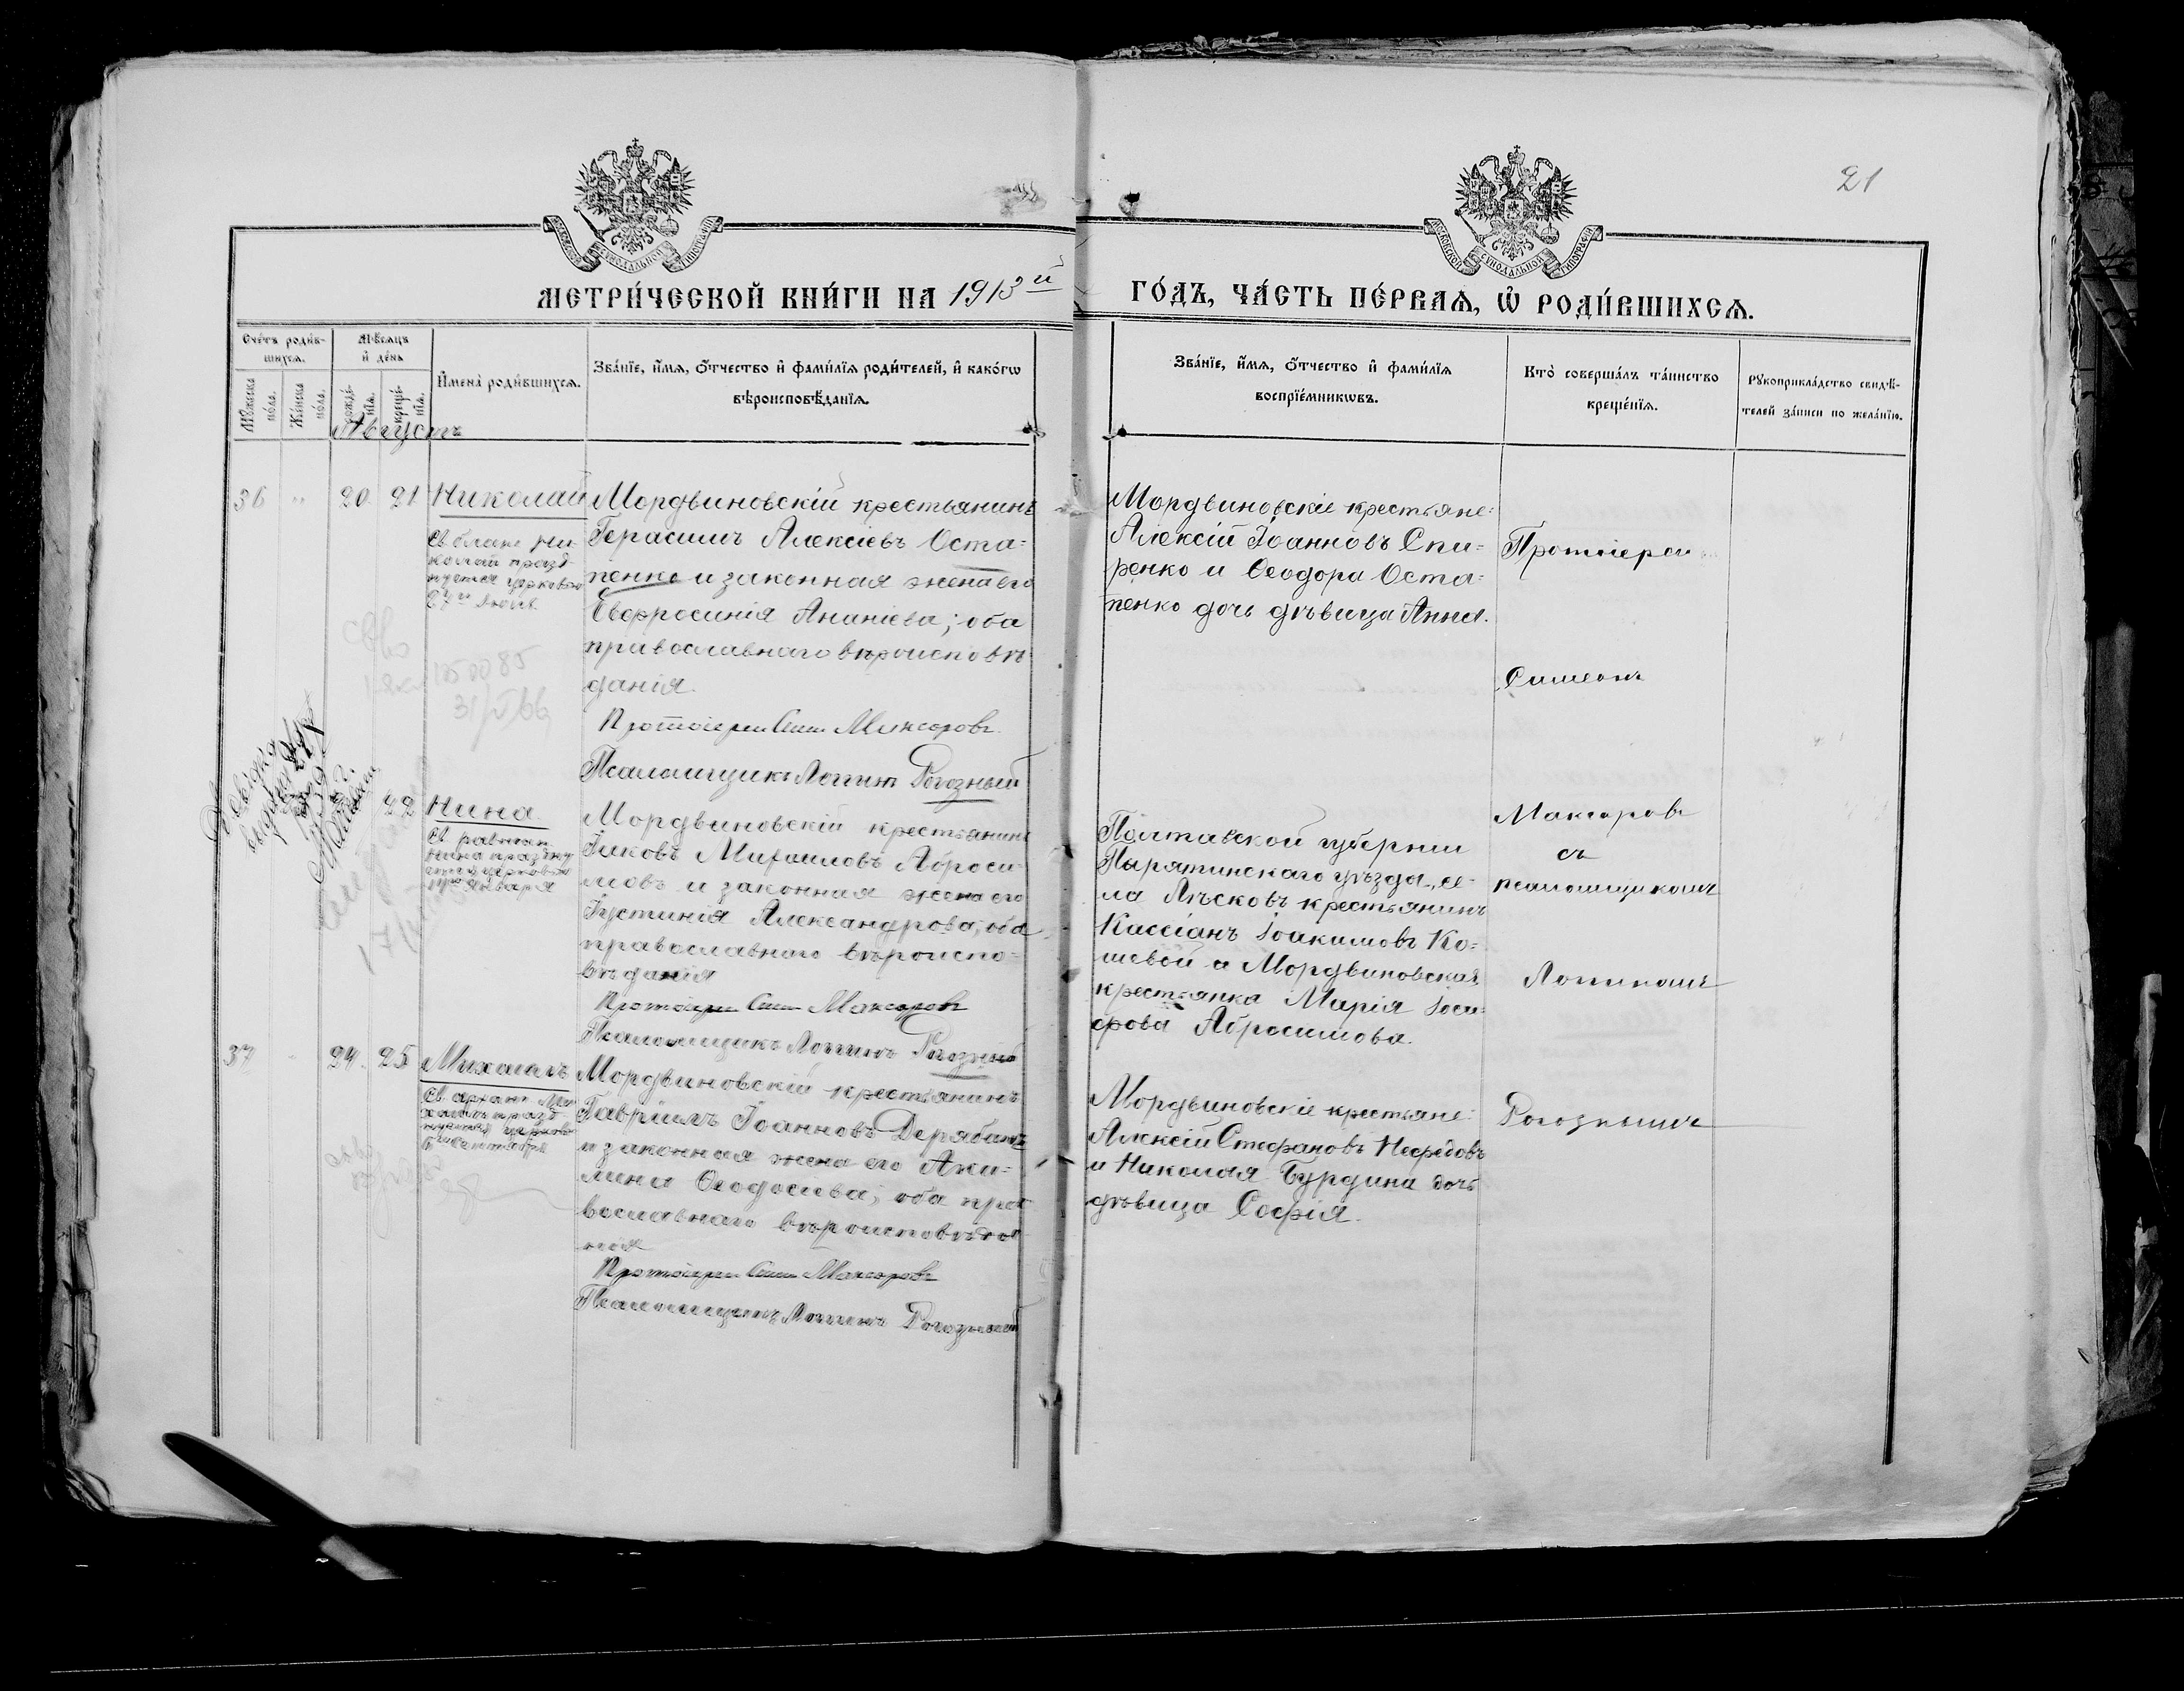 21
МЕТРИ́ЧЕСКОЙ КНИ́ГИ НА 1913й
ГО́ДЪ, ЧА́СТЬ ПЕ́РВАѦ, Ѡ҆ РОДИ́ВШИХСѦ.
Сче́тъ роди́в-
шихся.
Мѣ́сяцъ
и҆ де́нь
Мꙋ́жеска
по́ла.
Же́нска
по́ла.
рожде́-
нїѧ.
креще́-
нїѧ.
И҆мена̀ роди́вшихсѧ.
Зва́нїе, и҆́мѧ, ѻ҆́тчество и҆ фами́лїѧ роди́телей, и҆ како́гѡ
вѣроисповѣ́данїѧ.
Зва́нїе, и҆́мѧ, ѻ҆́тчество и҆ фами́лїѧ
воспрїе́мникѡвъ.
Кто̀ соверша́лъ та́инство
креще́нїѧ.
Рꙋкоприкла́дство свидѣ́-
телей за́писи по жела́нїю.
Августъ
36 " 20 21 Николай
Св. блаж. Ни-
колай празд-
нуется церковью
27го Іюля
Мордвиновскій крестьянинъ
Герасимъ Алексіевъ Оста=
пенко и законная жена его
Евфросинія Ананіева; оба
православнаго вѣроисповѣ-
данія.
Протоіерей Сим. Максоровъ
Псаломщикъ Логинъ Рогозный
Мордвиновскіе крестьяне:
Алексій Іоанновъ Спи=
ренко и Ѳеодора Оста=
пенко дочь дѣвица Анна.
Протоіерей
Симеонъ
Максоровъ
съ
псаломщикомъ
Логиномъ
Рогознымъ
150085
31/V 66
22 Нина
Св. равноап.
Нина праздну
ется церковью
14го Января
Мордвиновскій крестьянинъ
Іаковъ Михаиловъ Аброси-
мовъ и законная жена его
Іустинія Александрова; оба
православнаго вѣроиспо=
вѣданія
Протоіерей Сим. Максоровъ
Псаломщикъ Логинъ Рогозный
Полтавской губерніи
Пирятинскаго уѣзда, се-
ла Лѣсковъ крестьянинъ
Кассіанъ Іоакимовъ Ко=
шевой и Мордвиновская
крестьянка Марія Іоси=
фова Абросимова.
37 " 24 25 Михаилъ
Св. архан. Ми
хаилъ празд-
нуется церковью
6го Сентября
Мордвиновскій крестьянинъ
Гавріилъ Іоанновъ Дерябинъ
и законная жена его Аки=
лина Ѳеодосіева; оба пра
вославнаго вѣроисповѣда
нія
Протоіерей Сим. Максоровъ
Псаломщикъ Логинъ Рогозный
Мордвиновскіе крестьяне:
Алексій Стефановъ Нефедовъ
и Николая Бурдина дочь
дѣвица Софія.